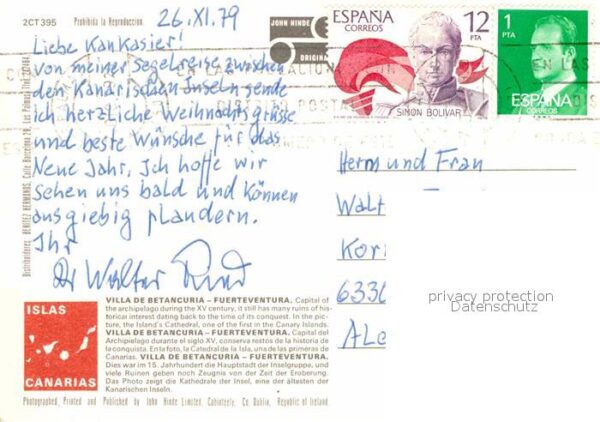 2CT395 Prohibida la Reproduccion.
26.XI.79
JOHN HINDE
ORIGINAL
ESPAÑA
CORREOS
12
PTA
SIMON BOLIVAR
1
PTA
ESPAÑA
CORREOS
Liebe Kankasier!
von meiner Segelreise zwischen
den Kanarischen Inseln sende
ich herzliche Weihnachtsgrüsse
und beste Wünsche für das
Neue Jahr, Ich hoffe wir
sehen uns bald und können
ausgiebig plandern.
Ihr
Dr Walter
Herrn und Frau
Walt
Kor
6330
Ale
privacy protection
Datenschutz
Distribuidores: BENITEZ HERMANOS, Calle Barcelona 28, Las Palmas
ISLAS
CANARIAS
VILLA DE BETANCURIA – FUERTEVENTURA. Capital of
the archipelago during the XV century, it still has many ruins of his-
torical interest dating back to the time of its conquest. In the pic-
ture, the Island's Cathedral, one of the first in the Canary Islands.
VILLA DE BETANCURIA – FUERTEVENTURA. Capital del
Archipielago durante el siglo XV, conserva restos de la historia de
la conquista. En la foto, la Catedral de la Isla, una de las primeras de
Canarias. VILLA DE BETANCURIA – FUERTEVENTURA.
Dies war im 15. Jahrhundert die Hauptstadt der Inselgruppe, und
viele Ruinen geben noch Zeugnis von der Zeit der Eroberung.
Das Photo zeigt die Kathedrale der Insel, eine der ältesten der
Kanarischen Inseln.
Photographed, Printed and Published by John Hinde Limited, Cabinteely, Co. Dublin, Republic of Ireland.